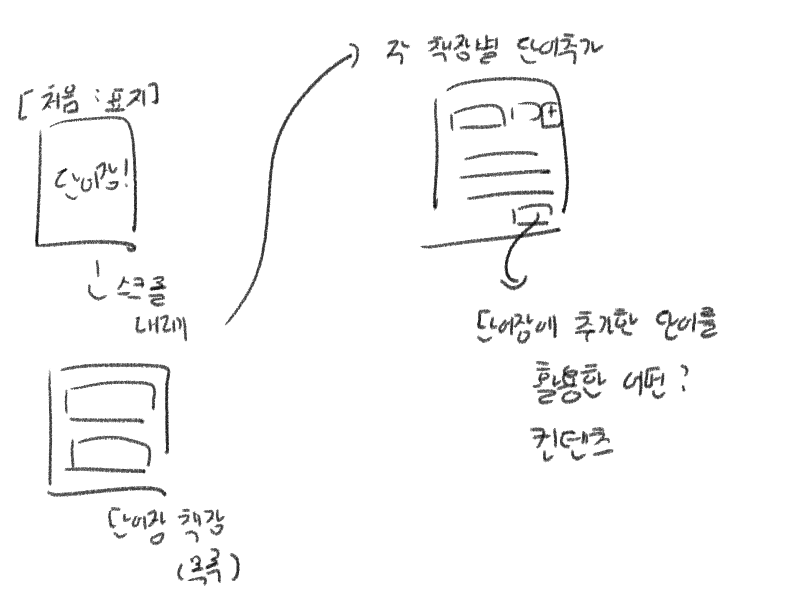 [처음 : 표지]
단어장!
스크롤
내리게
단어장 책장
(목록)
각 책장별 단어추가
+
단어장에 추가한 단어를
활용한 어떤?
컨텐츠